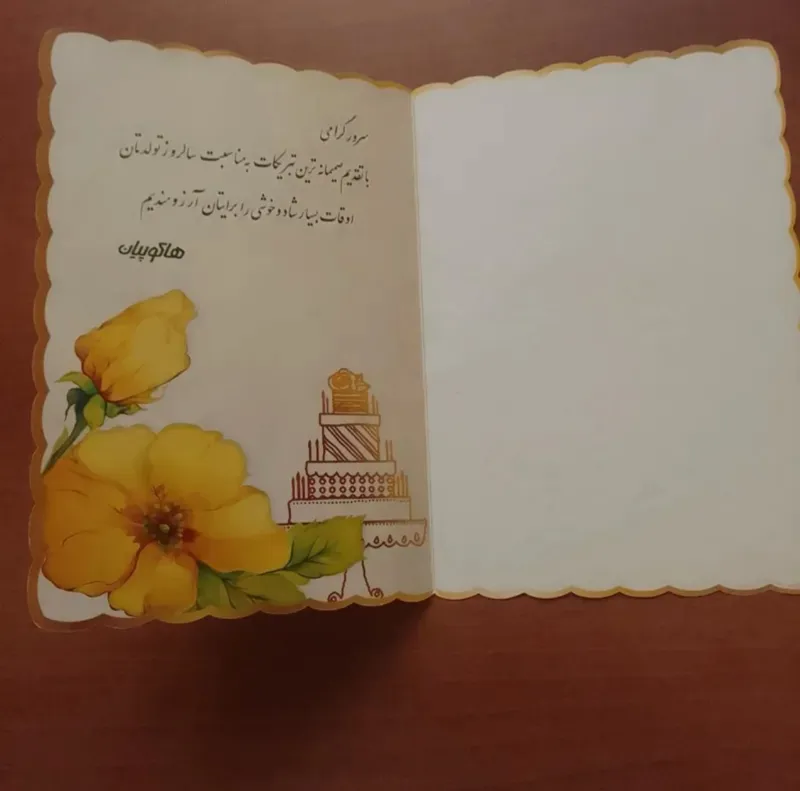 سرور گرامی
با تقدیم صمیمانه ترین تبریکات به مناسبت سالروز تولدتان
اوقات بسیار شاد و خوشی را برایتان آرزومندیم
هاکوپیان